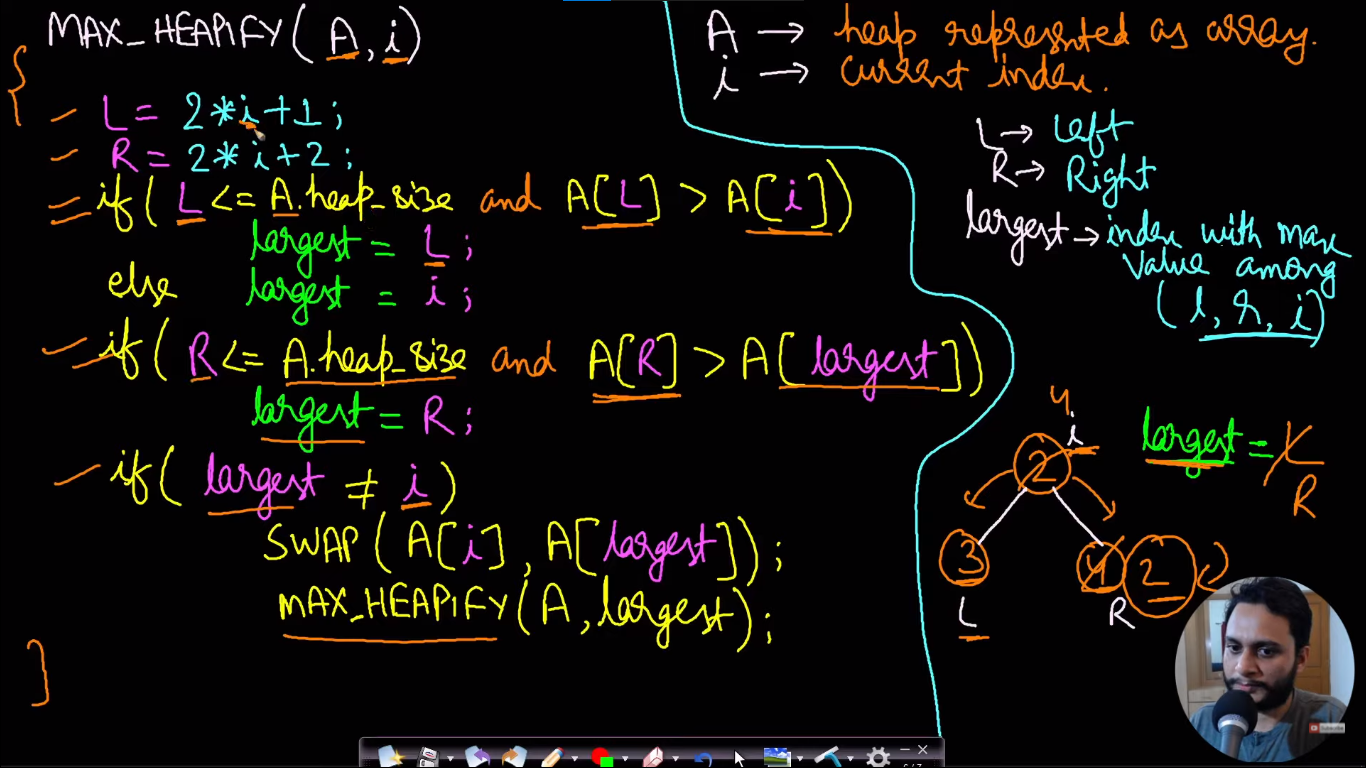 MAX_HEAPIFY(A,i)
{
L = 2*i+1;
R = 2*i+2;
if( L <= A.heap_size and A[L] > A[i])
largest = L;
else largest = i;
if( R <= A.heap_size and A[R] > A[largest])
largest = R;
if( largest ≠ i)
SWAP( A[i], A[largest]);
MAX_HEAPIFY(A, largest);
}
A → heap represnted as array.
i → current index.
L → Left
R → Right
largest → index with max
value among
(l, r, i)
4
i
2
largest = L
R
3 4 2
L R
Subscribe